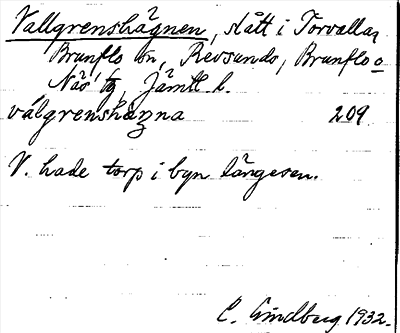 Vallgrenshägnen, slått i Torvallar
Brunflo sn, Revsunds, Brunflo o
Näs' tg, Jämtl. l.
välgrenshæŋna 209
V. hade torp i byn längesen.
C. Lindberg 1932.